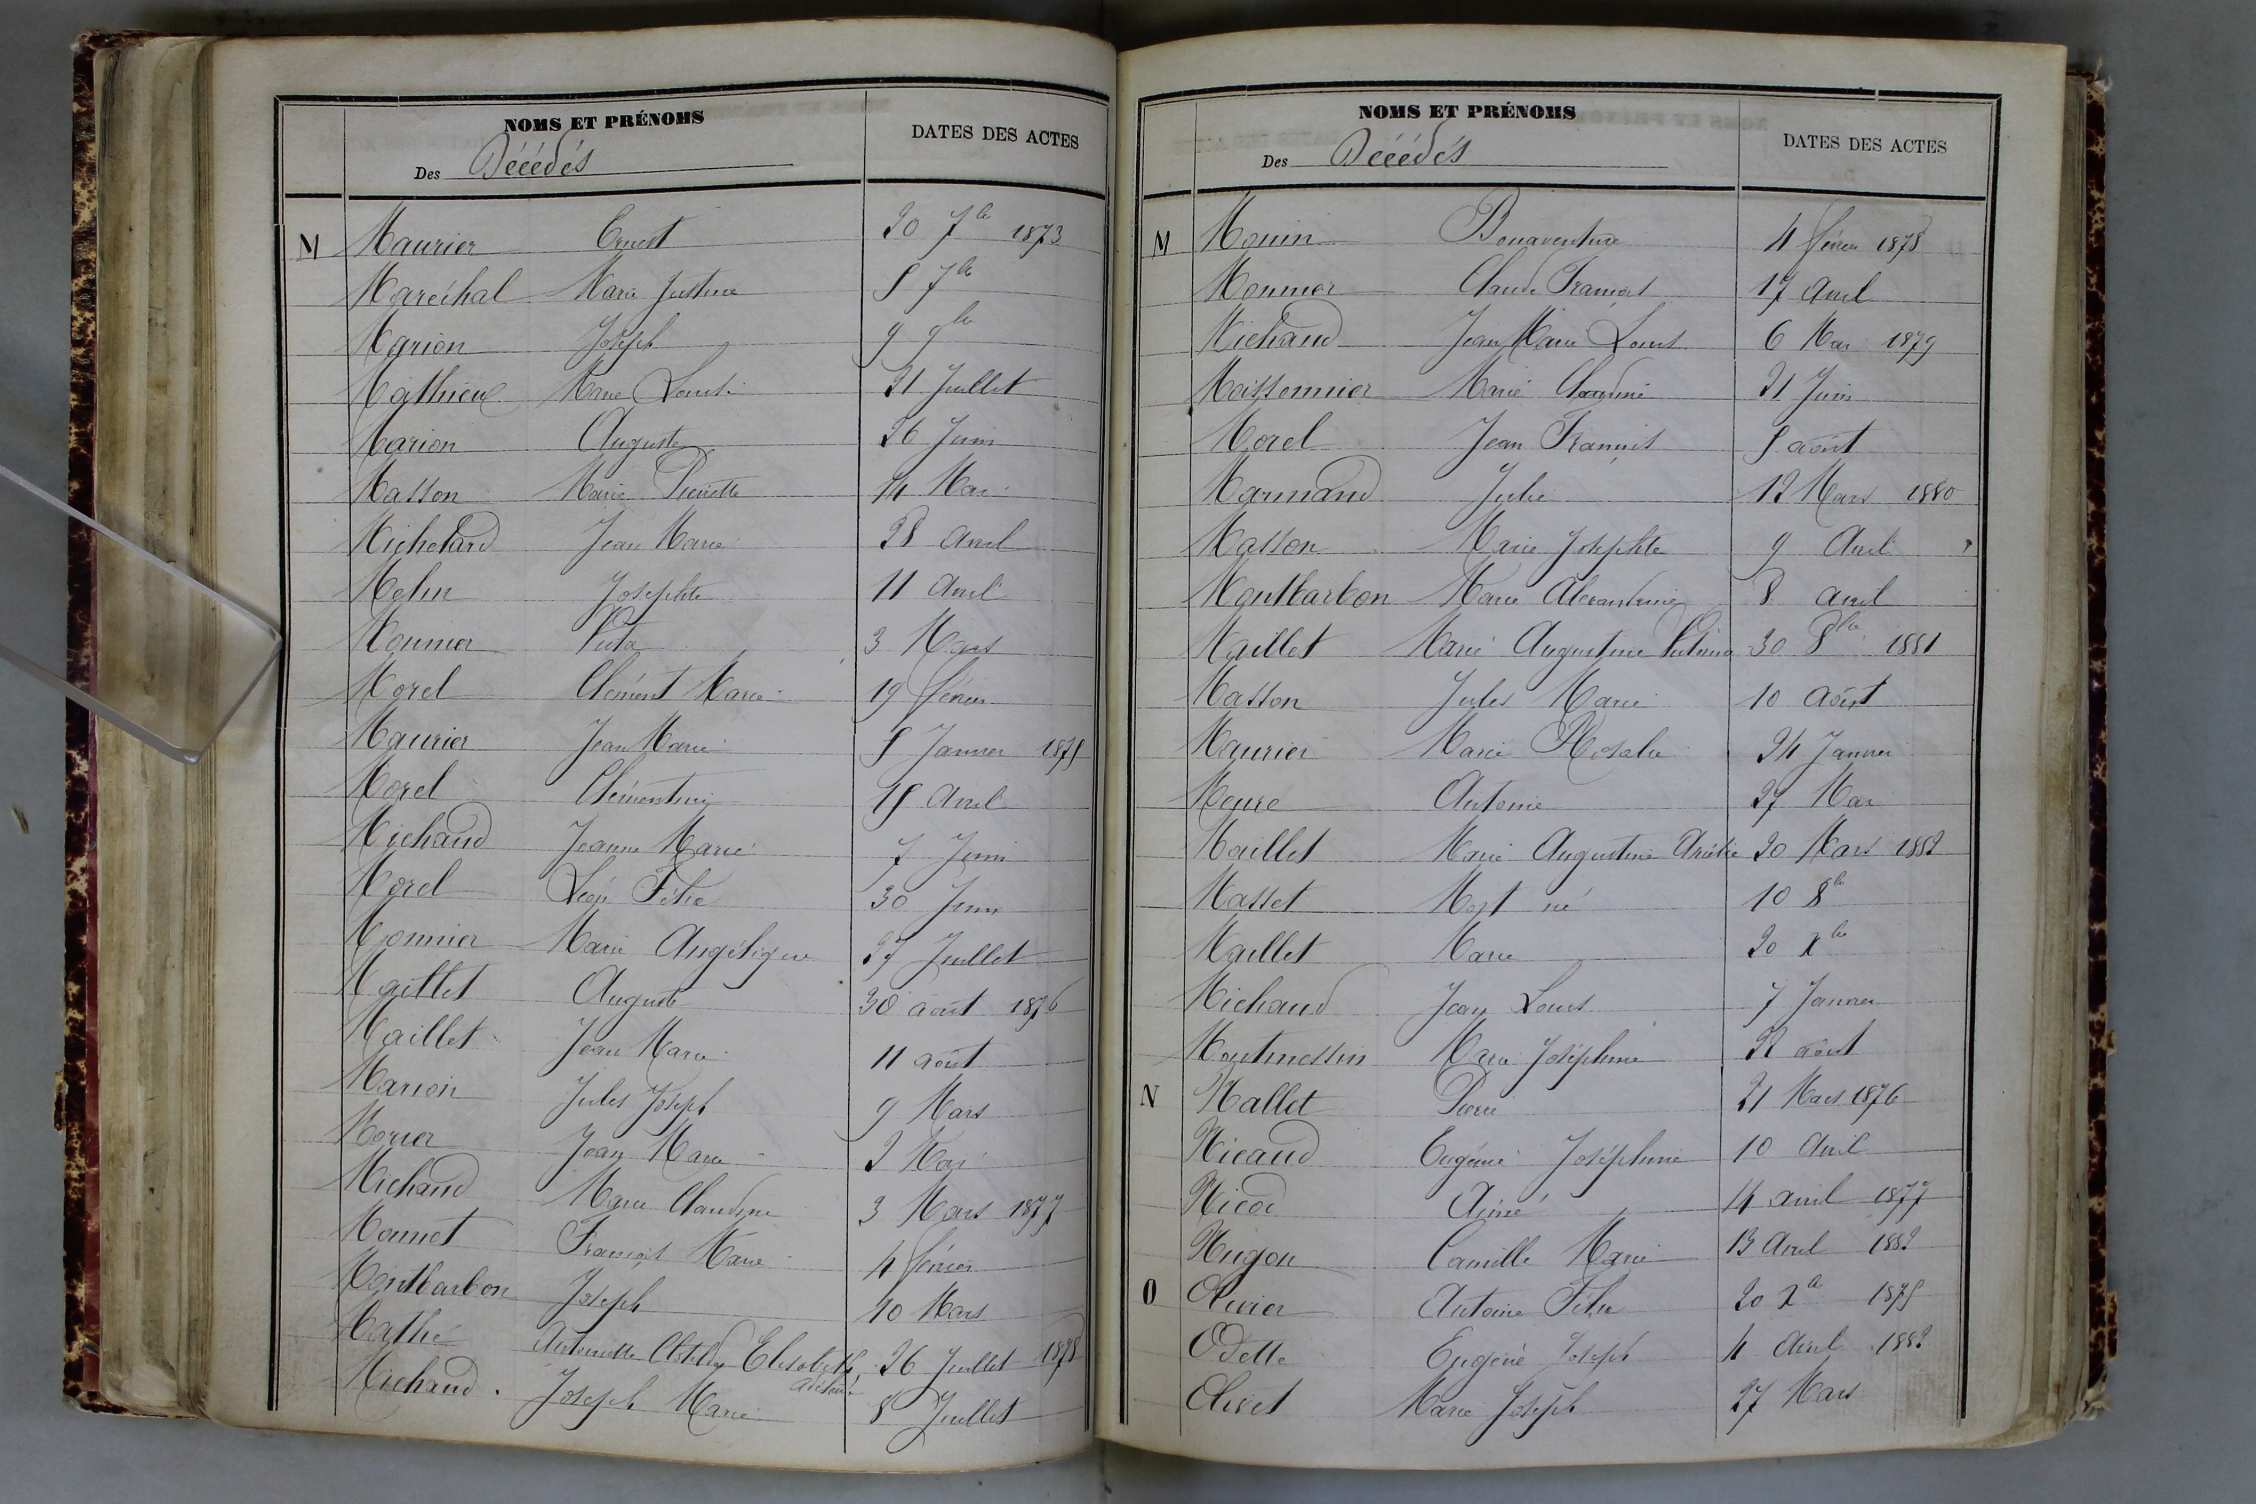 NOMS ET PRÉNOMS
Des Décédés
DATES DES ACTES
M Maurier Ernest 20 7bre 1873
Maréchal Marie Justine 5 7bre
Marion Joseph 9 9bre
Mathieux Marie Louise 21 Juillet
Marion Auguste 26 Juin
Masson Marie Pierrette 14 Mai
Michelard Jean Marie 28 avril
Melin Josephte 11 avril
Monnier 3 Mars
Morel Clément Marie 19 février
Maurier Jean Marie 5 Janvier 1875
Morel Clémentine 15 avril
Michaud Jeanne Marie 7 Juin
Morel Léon Félix 30 Juin
Monnier Marie Angélique 27 Juillet
Maillet Auguste 30 août 1876
Maillet Jean Marie 11 août
Marion Jules Joseph 9 Mars
Morier Jean Marie 2 Mai
Michaud Marie Claudine 3 Mars 1877
Monnet François Marie 4 février
Montbarbon Joseph 10 Mars
Mathé Antoinette Clotilde Elisabeth 26 Juillet 1878
Michaud Joseph Marie 8 Juillet
NOMS ET PRÉNOMS
Des Décédés
DATES DES ACTES
M Monin Bonaventure 4 février 1878
Monnier Claude François 17 avril
Michaud Jean Marie Louis 6 Mai 1879
Moissonnier Marie Claudine 21 Juin
Morel Jean François 5 août
Marmand Julie 12 Mars 1880
Masson Marie Josephte 9 Avril
Montbarbon Marie Alexandrine 8 avril
Maillet Marie Augustine 30 8bre 1881
Masson Jules Marie 10 août
Maurier Marie Rosalie 24 Janvier
Meure Antoine 27 Mai
Maillet Marie Augustine 20 Mars 1882
Masset Mort né 10 8bre
Maillet Marie 20 Xbre
Michaud Jean Louis 7 Janvier
Montmessin Marie Joséphine 22 août
N Nallet Pierre 21 Mars 1876
Nicaud Eugénie Joséphine 10 Avril
Nicod Aimé 14 avril 1877
Nugon Camille Marie 13 Avril 1882
O Olivier Antoine Félix 20 Xbre 1875
Odette Eugène Joseph 4 Avril 1882
Olivet Marie Joseph 27 Mars